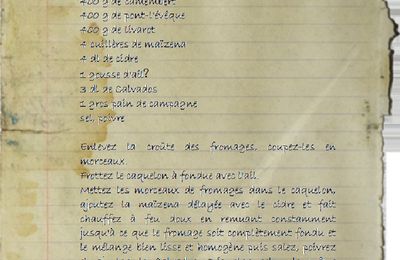 400 g de camembert
400 g de pont-l'évêque
400 g de livarot
4 cuillères de maïzena
4 dl de cidre
1 gousse d'ail?
3 dl de Calvados
1 gros pain de campagne
sel, poivre
Enlevez la croûte des fromages, coupez-les en
morceaux.
Frottez le caquelon à fondue avec l'ail.
Mettez les morceaux de fromages dans le caquelon,
ajoutez la maïzena délayée avec le cidre et fait
chauffez à feu doux en remuant constamment
jusqu'à ce que le fromage soit complètement fondu et
le mélange bien lisse et homogène puis salez, poivrez